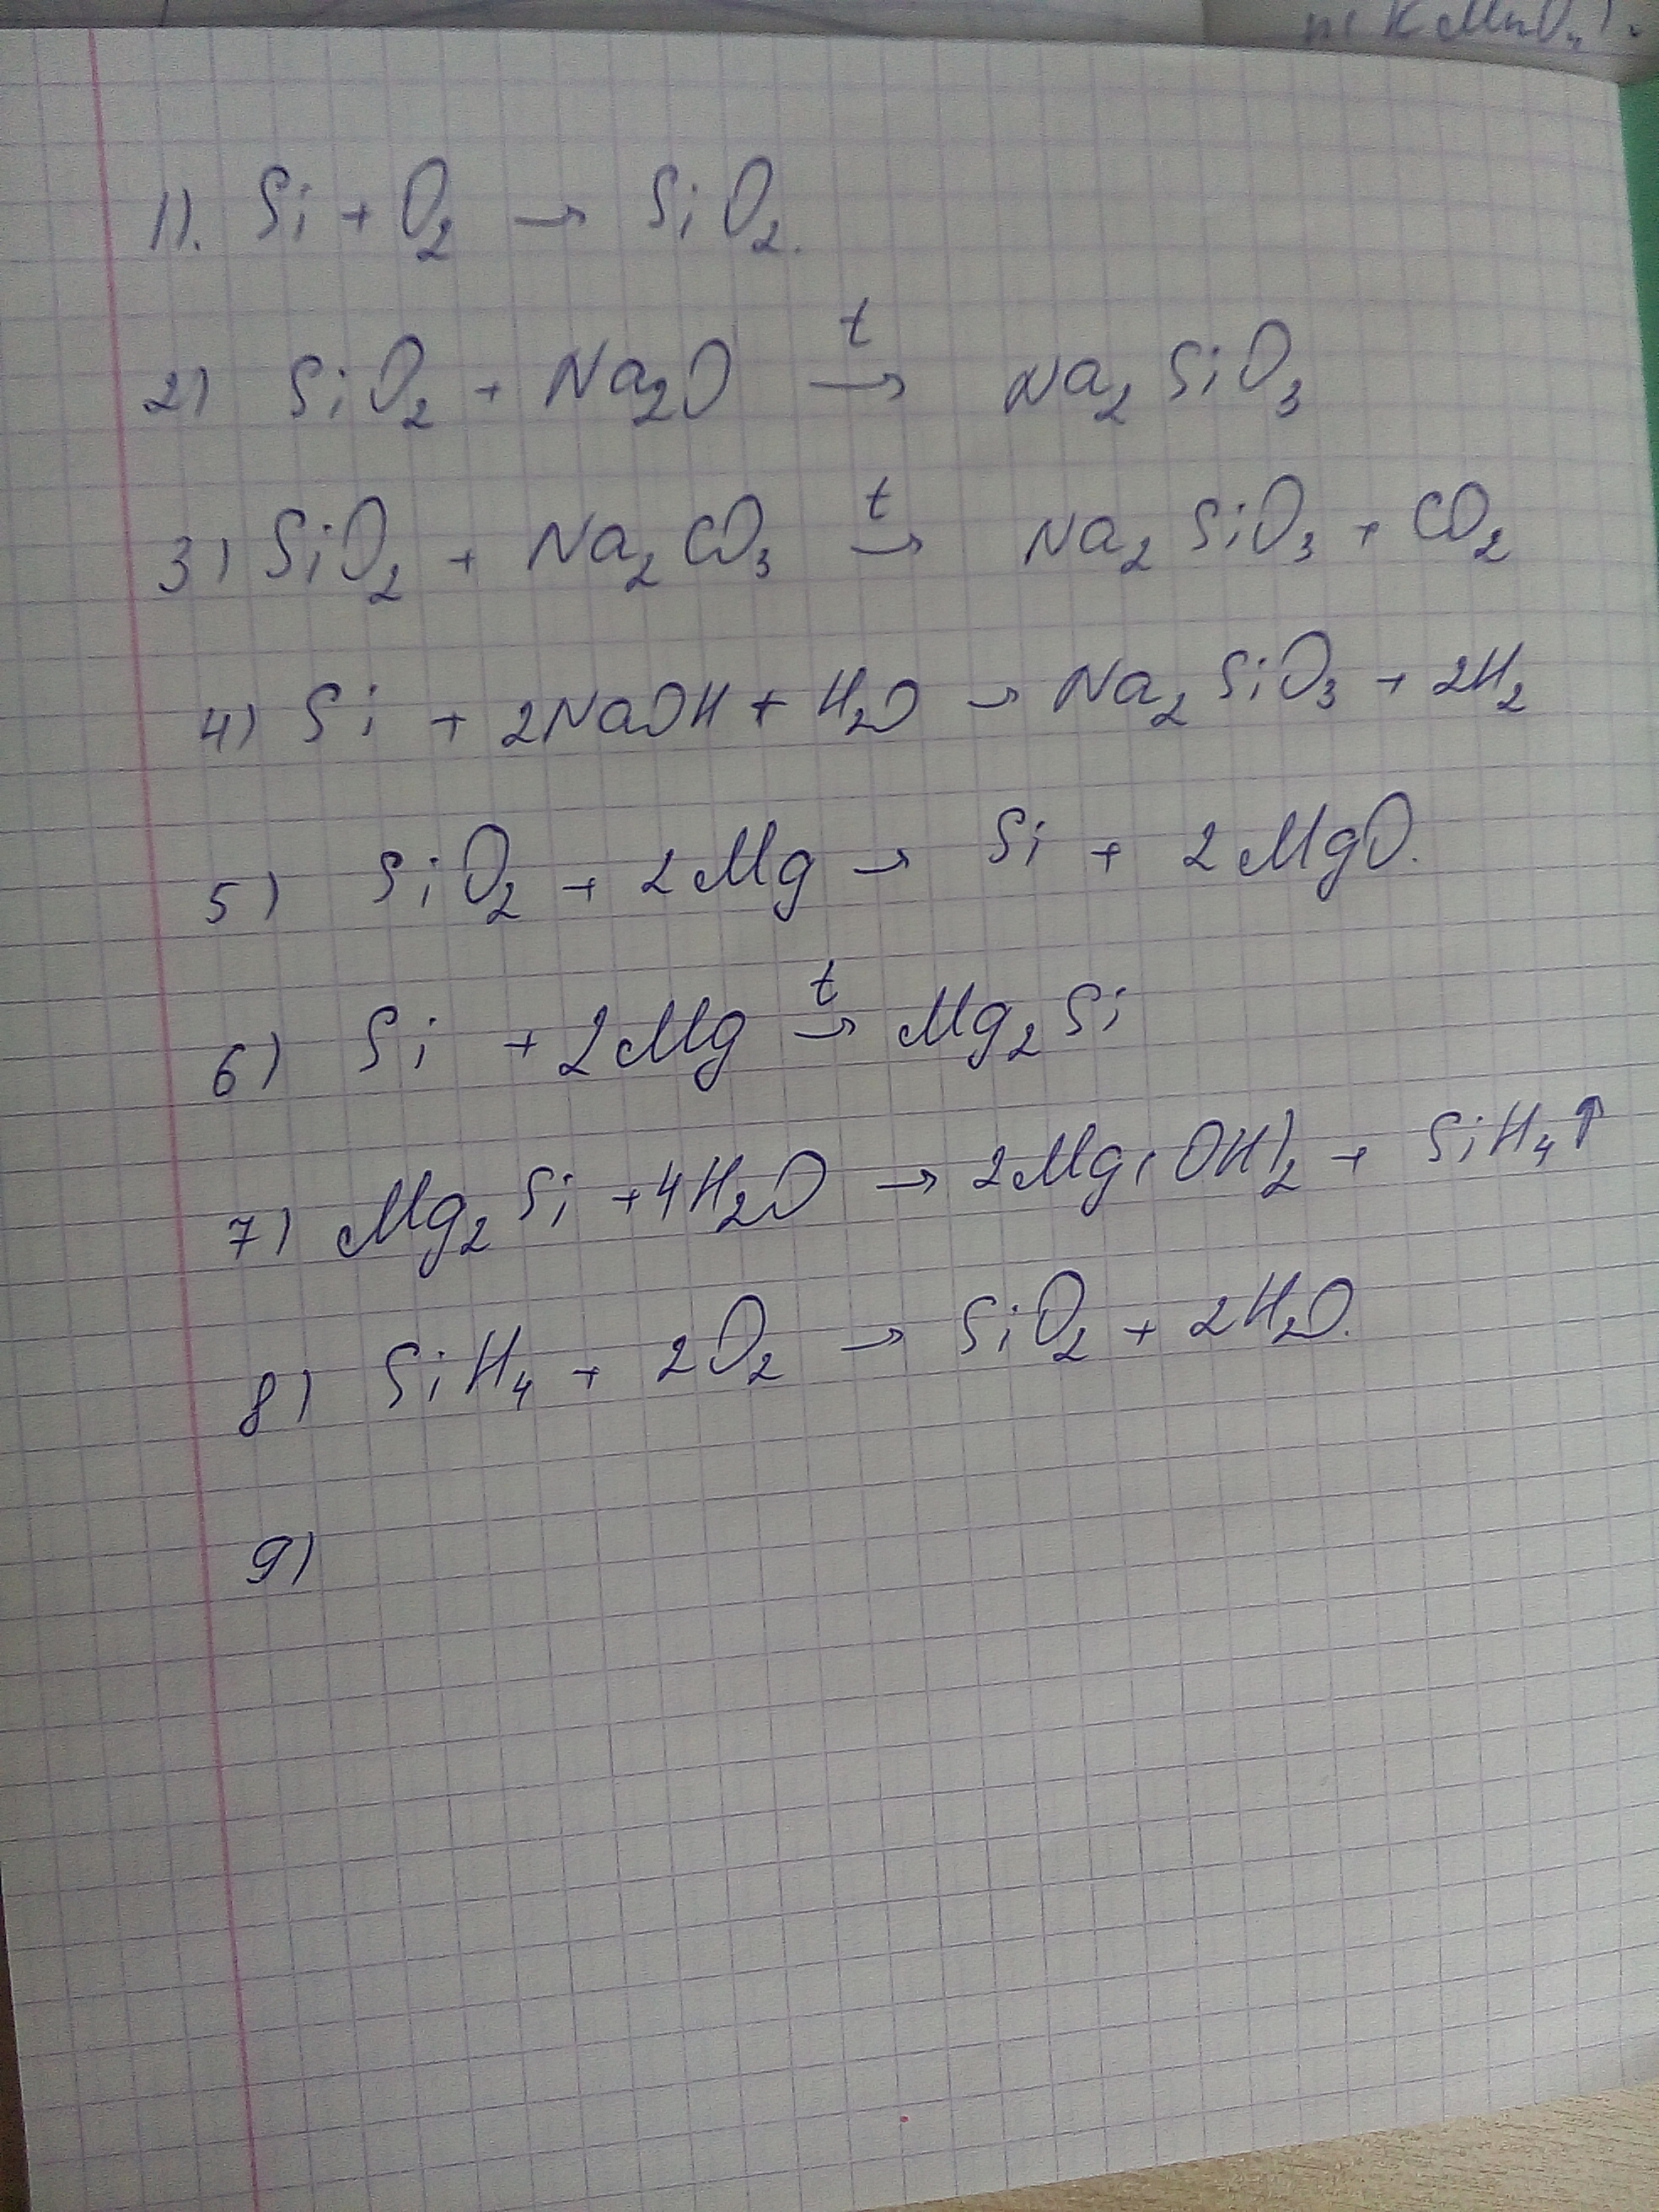 KMnO₄).
1). Si + O₂ → SiO₂.
2) SiO₂ + Na₂O →ᵗ Na₂SiO₃
3) SiO₂ + Na₂CO₃ →ᵗ Na₂SiO₃ + CO₂
4) Si + 2NaOH + H₂O → Na₂SiO₃ + 2H₂
5) SiO₂ + 2Mg → Si + 2MgO.
6) Si + 2Mg →ᵗ Mg₂Si
7) Mg₂Si + 4H₂O → 2Mg(OH)₂ + SiH₄↑
8) SiH₄ + 2O₂ → SiO₂ + 2H₂O.
9)